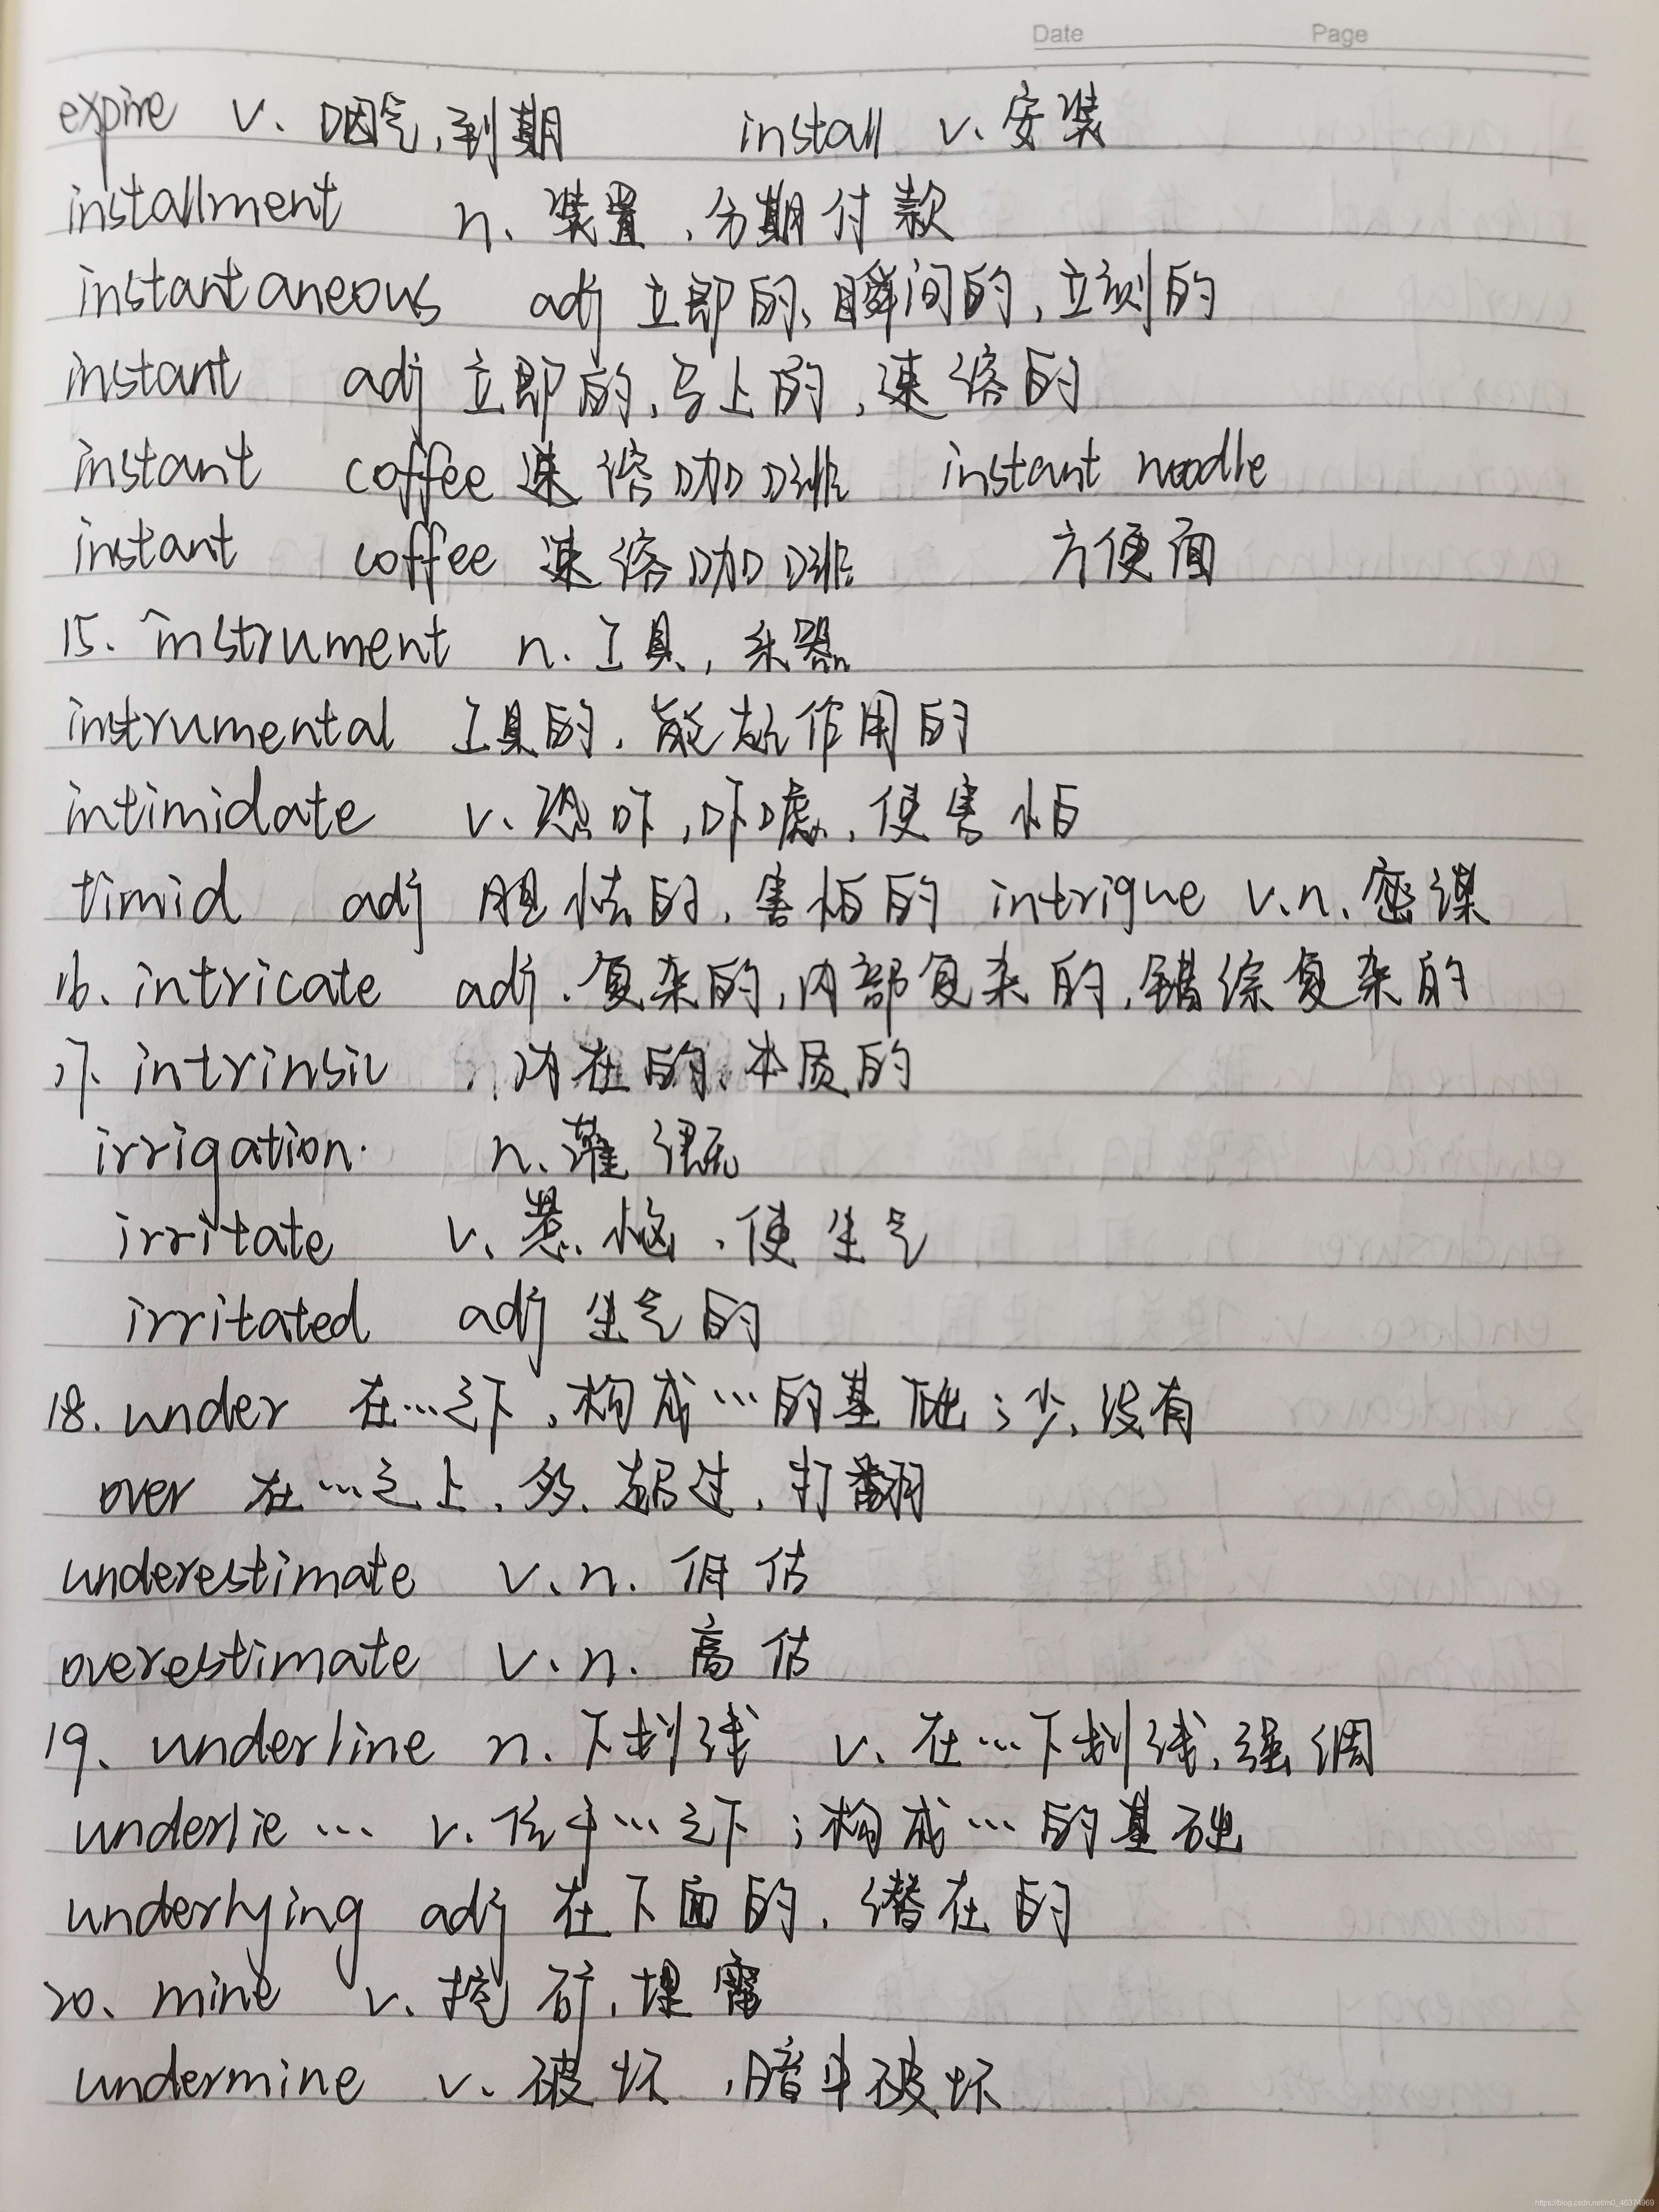 Date Page
expire v. 咽气,到期 install v. 安装
installment n. 装置,分期付款
instantaneous adj 立即的、瞬间的,立刻的
instant adj 立即的,马上的,速溶的
instant coffee 速溶咖啡 instant noodle
instant coffee 速溶咖啡 方便面
15. instrument n. 工具,乐器
instrumental 工具的,能起作用的
intimidate v. 恐吓,吓唬,使害怕
timid adj 胆怯的,害怕的 intrigue v.n. 密谋
16、intricate adj. 复杂的,内部复杂的,错综复杂的
17、intrinsic 内在的、本质的
irrigation. n. 灌溉
irritate v. 惹恼,使生气
irritated adj 生气的
18. under 在…之下,构成…的基础;少,没有
over 在…之上,多,超过,打翻
underestimate v.n. 低估
overestimate v.n. 高估
19、underline n. 下划线 v. 在…下划线,强调
underlie … v. 位于…之下;构成…的基础
underlying adj 在下面的,潜在的
20、mine v. 挖矿,埋雷
undermine v. 破坏,暗中破坏
https://blog.csdn.net/m0_46374969